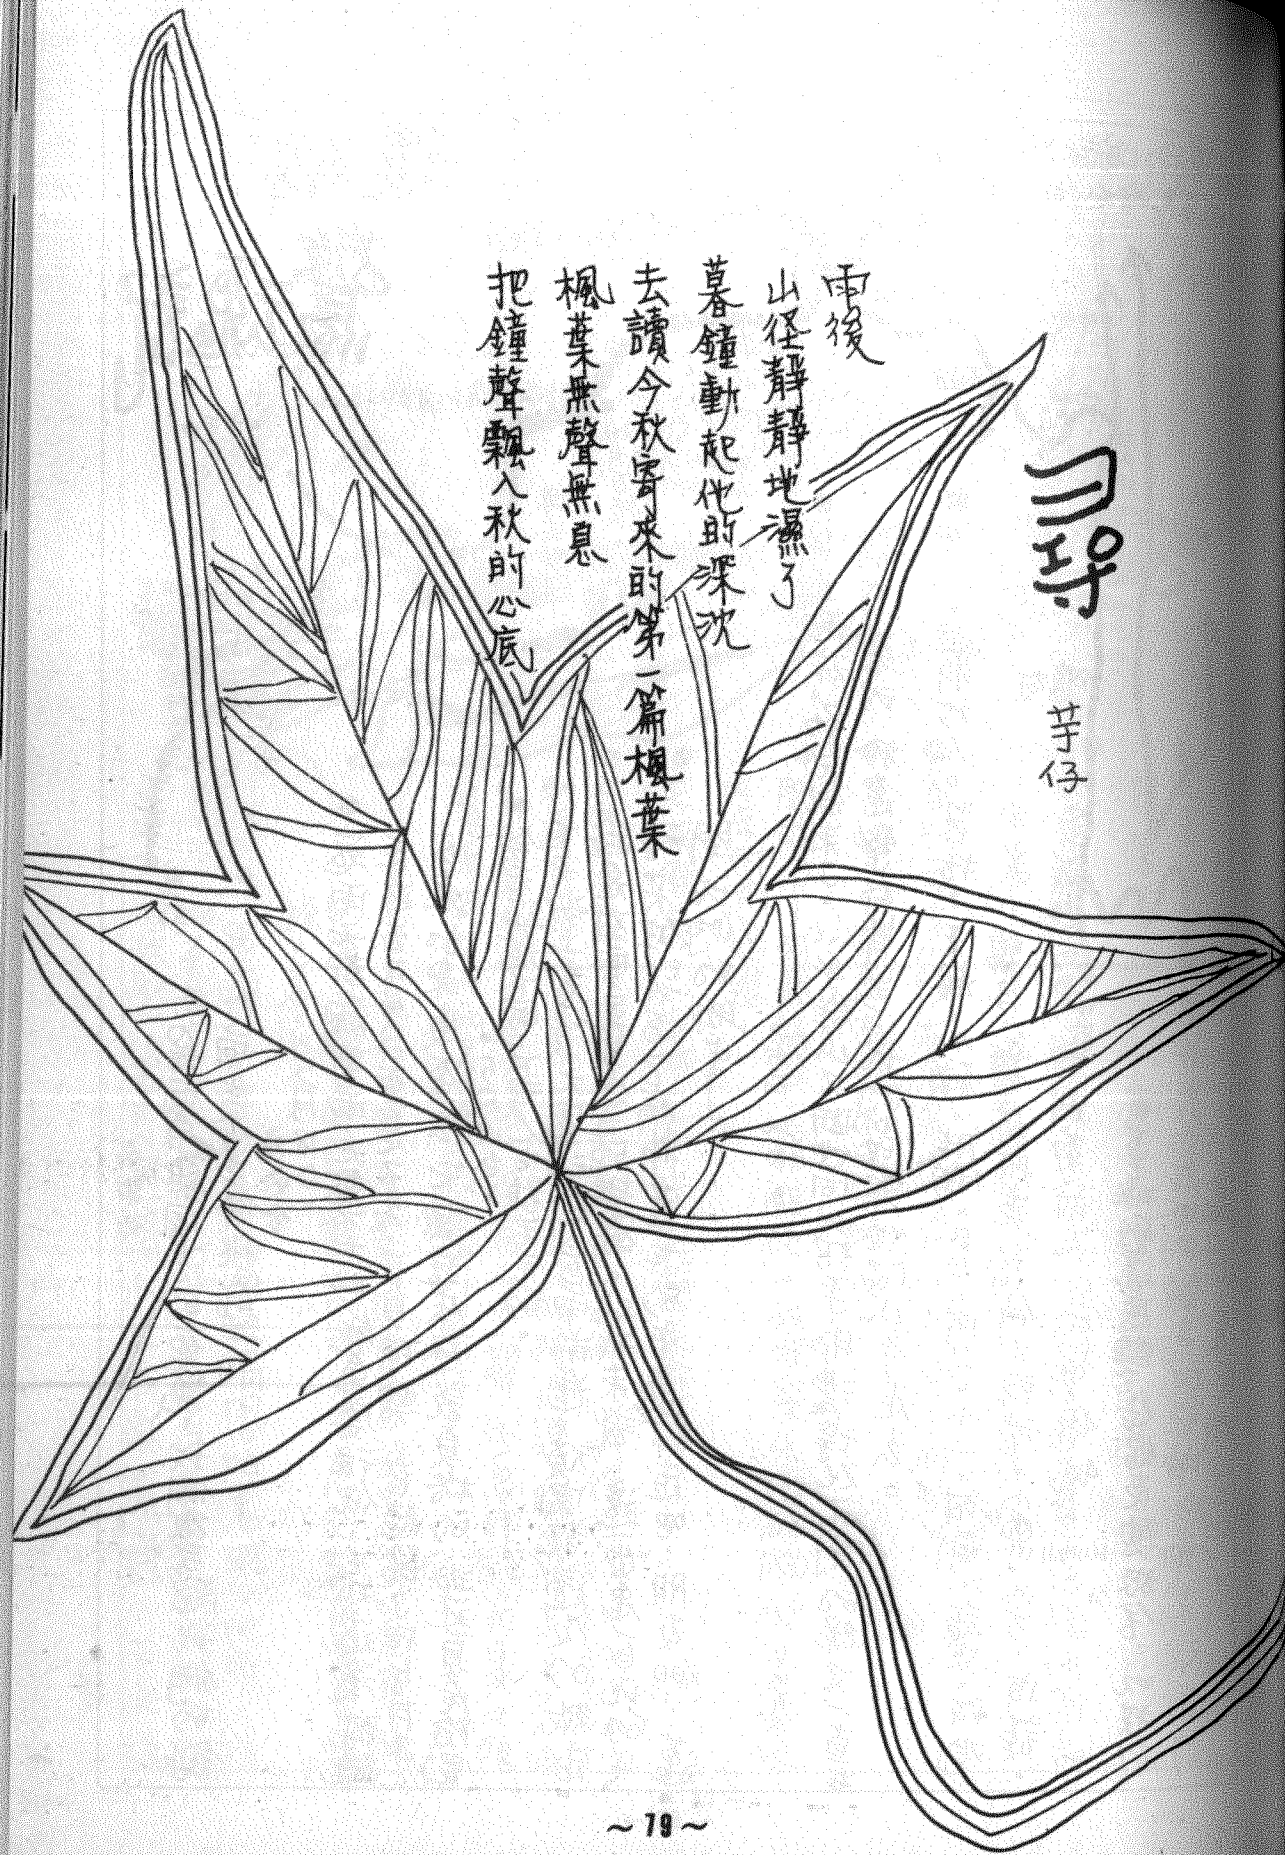 尋
芋仔
雨後
山徑靜靜地濕了
暮鐘動起他的深沈
去讀今秋寄來的第一篇楓葉
楓葉無聲無息
把鐘聲飄入秋的心底
~79~